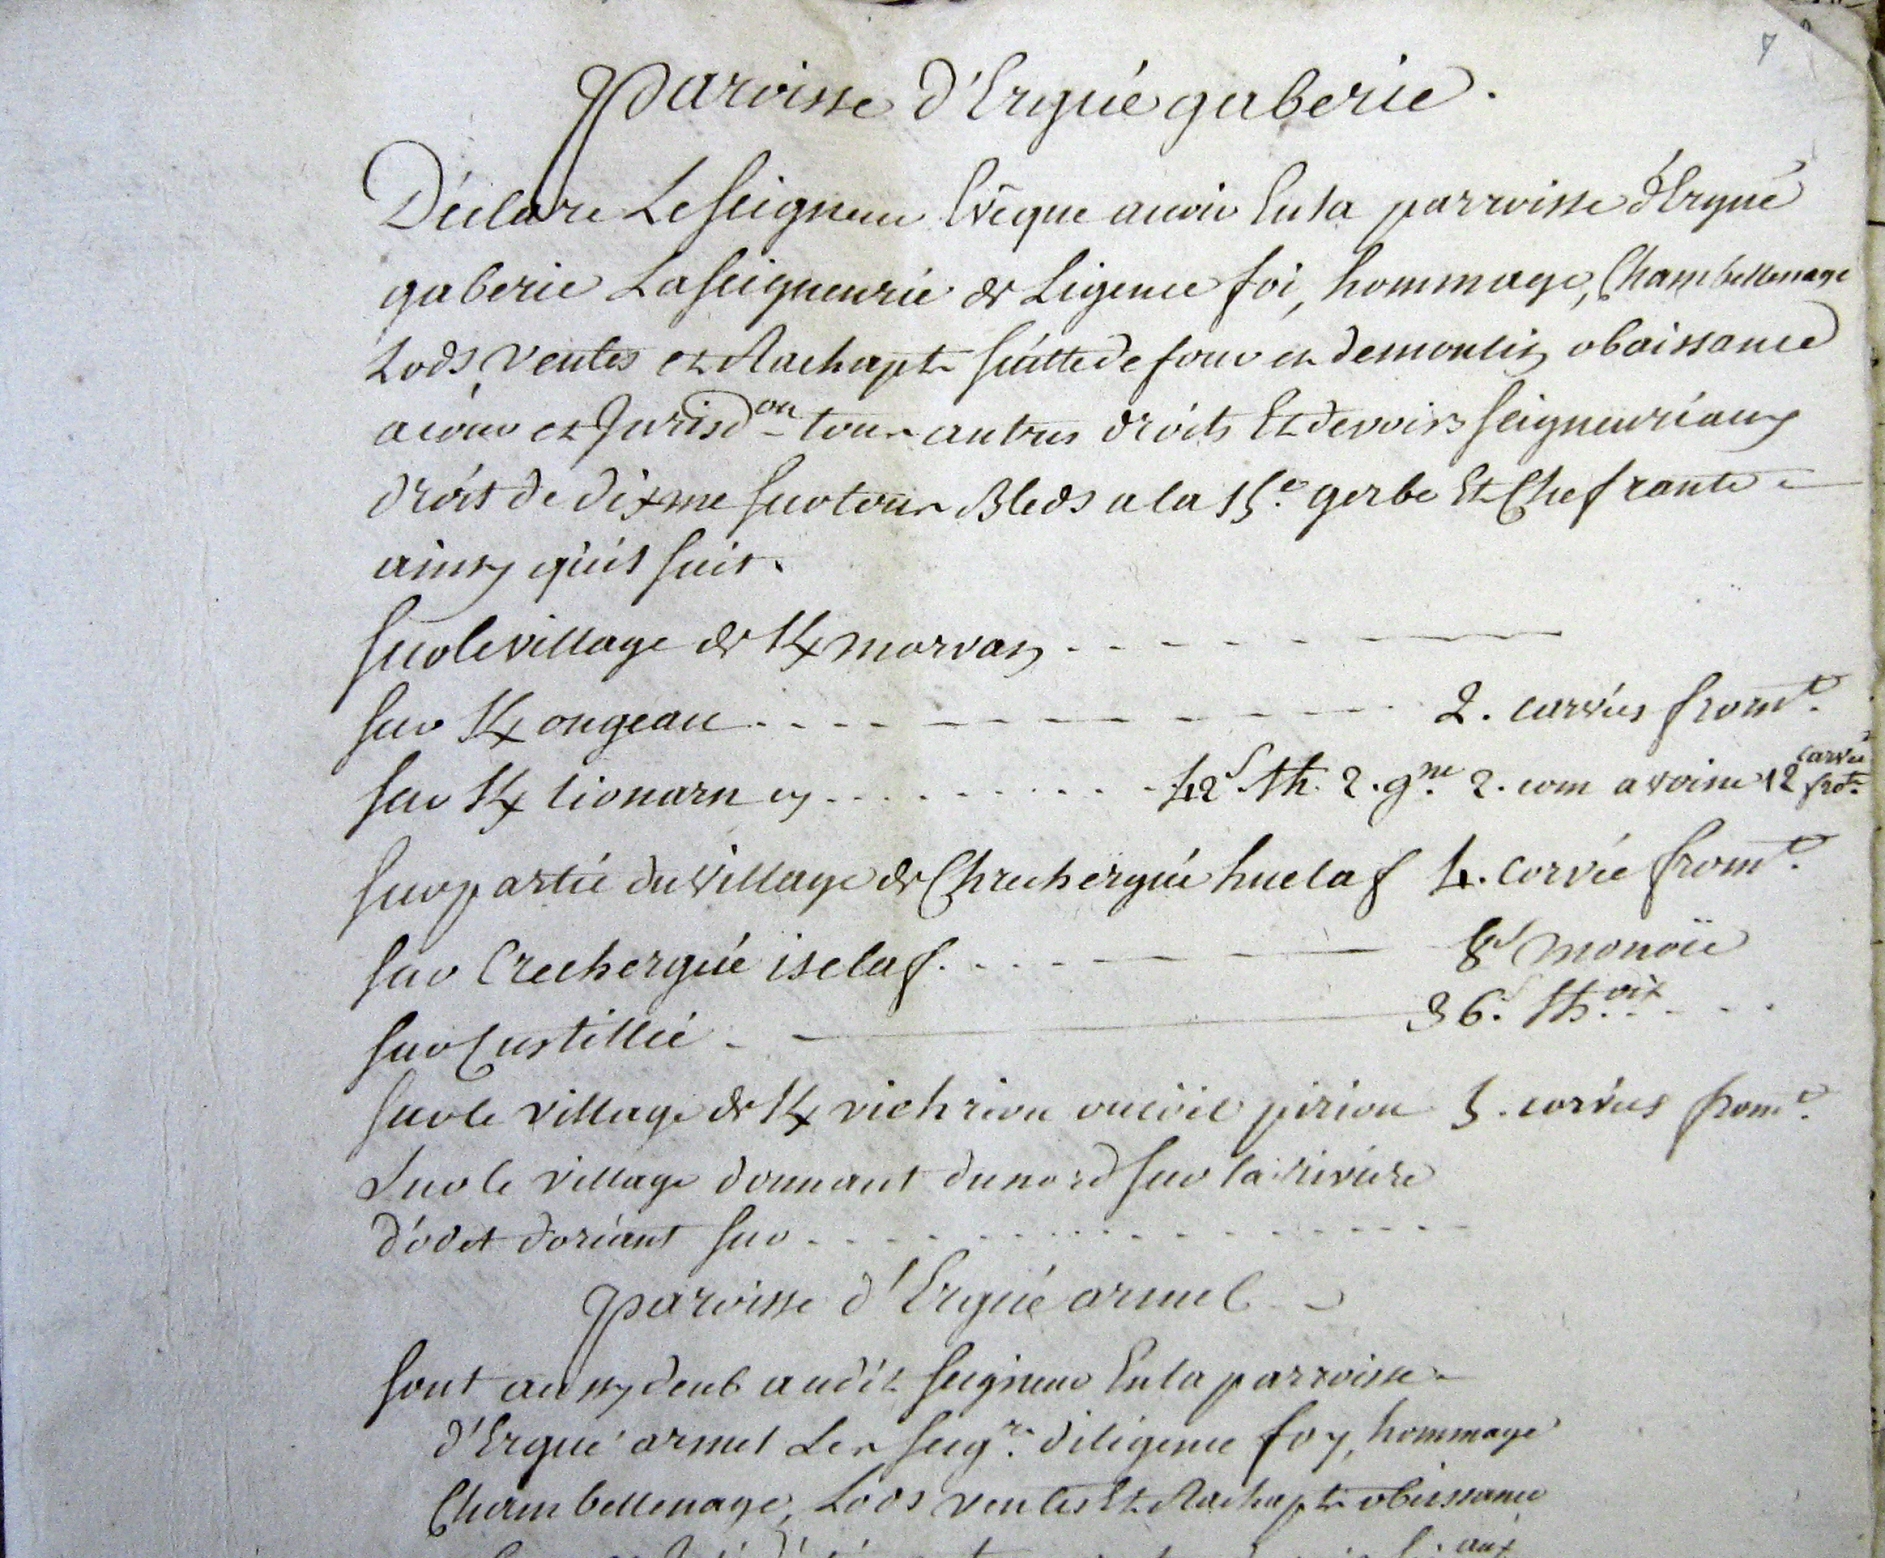 7
Paroisse d'Ergué gaberic.
Déclare Le seigneur Evêque avoir En la parroisse d'Ergué
gaberic La seigneurie de Ligence foi, hommage, Chambellenage
Lods, ventes et Rachapt suitte de four et de moulin, obaissance
a cour et Jurisd.on tous autres droits Et devoirs seigneuriaux
droit de dixme sur tous Bleds a la 15.e gerbe Et Chefrante
ainsy qu'il suit.
sur le village de Kmorvan
sur K ongeau 2. carvées from.t
sur K lionarn 42.s th. 2. g.ne 2. com avoine 12 carvée fro.t
sur partie du village de Chrechergué huelaf 4. corvée from.t
sur Crechergué iselaf 8.s monoïe
sur Custillié 36.s th.oix
sur le village de K vichriou piriou 5. corvées from.t
Sur le village donnant du nord sur la rivière
d'odet d'oriant sur
Paroisse d'Ergué armel
sont aussy deub audit seigneur En la parroisse
d'Ergué armel Les seig.rs de ligence foy, hommage
Chambellenage, Lods ventes Et Rachapt obeissance